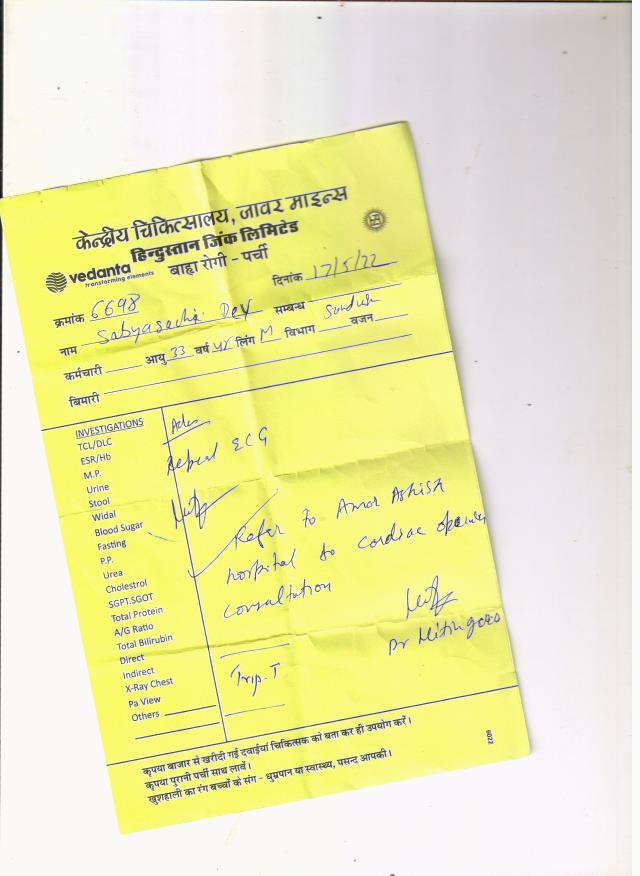 केन्द्रीय चिकित्सालय, जावर माइन्स
हिन्दुस्तान जिंक लिमिटेड
vedanta
transforming elements
बाह्य रोगी - पर्ची
क्रमांक 6698 दिनांक 17/5/22
नाम Sabyasachi Dey सम्बन्ध
कर्मचारी आयु 33 वर्ष yr लिंग M विभाग वजन
बिमारी
INVESTIGATIONS
TCL/DLC
ESR/Hb
M.P.
Urine
Stool
Widal
Blood Sugar
Fasting
P.P.
Urea
Cholestrol
SGPT.SGOT
Total Protein
A/G Ratio
Total Bilirubin
Direct
Indirect
X-Ray Chest
Pa View
Others
Adv
Repeat ECG
Refer to Amar Ashish
hospital to cardiac
consultation
Dr Nitin
Trop. T
कृपया बाजार से खरीदी गई दवाईयां चिकित्सक को बता कर ही उपयोग करें।
कृपया पुरानी पर्ची साथ लावें।
खुशहाली का रंग बच्चों के संग - धुम्रपान या स्वास्थ्य, पसन्द आपकी।